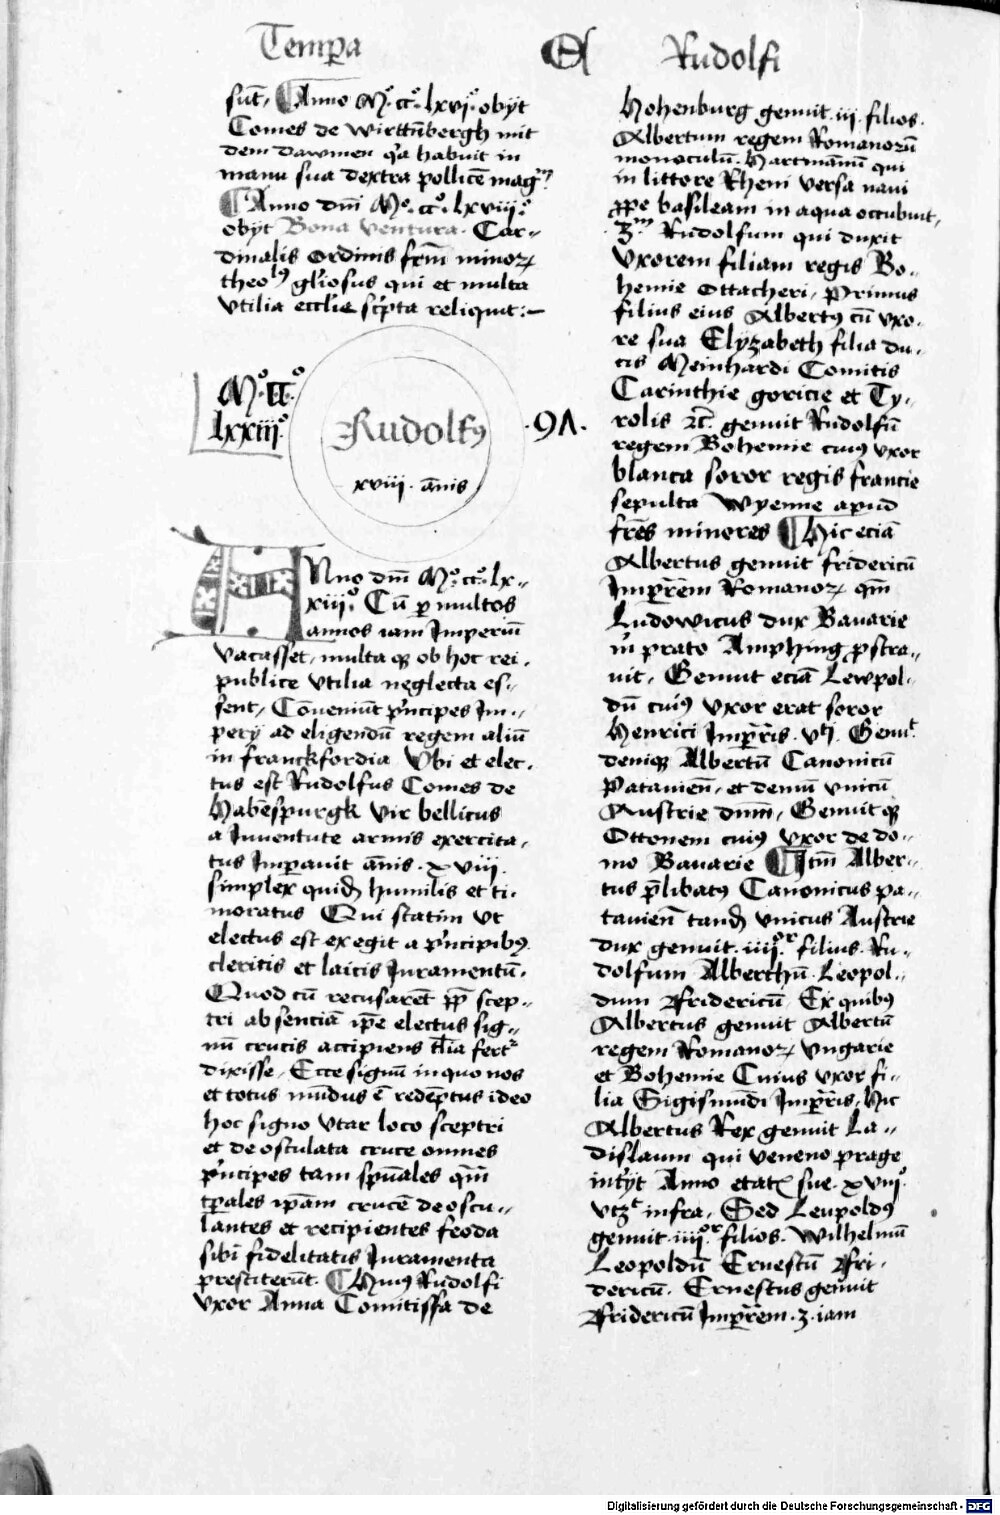 Tempa Et Rudolfi
sūt. Anno Mº ccº lxviº obyt
Comes de wirtñbergh mit
dem dawmen qa habuit in
manu sua dextra pollicē mag
Anno dm̄ Mº ccº lxviiiº
obyt Bona ventura. Car-
dinalis Ordinis frm̄ minoꝝ
theolꝰ gliosus qui et multa
vtilia ecclie scpta reliquit :-
Mº IIº
lxxiiiº
Rudolfꝰ
xviii annis
91
Anno dm̄ Mº ccº lx-
xiiiº Cū p multos
annos iam Imperiū
vacasset, multa qꝫ ob hoc rei
publice vtilia neglecta es-
sent, Conueniūt pncipes Im-
pery ad eligendū regem aliū
in franckfordia Vbi et elec-
tus est Rudolfus Comes de
Habespurgk vir bellicus
a Iuuentute armis exercita-
tus Impauit annis xviii
simplex quidē humilis et ti-
moratus Qui statim vt
electus est exegit a pncipibꝰ
clericis et laicis Iuramentū.
Quod cū recusarēt pp scep-
tri absenciā ipe electus sig-
nū crucis accipiens tlia fertᷣ
dixisse, Ecce signū in quo nos
et totus mūdus ē redēptus ideo
hoc signo vtar loco sceptri
et deosculata cruce omnes
pncipes tam spūales qm̄
tpales ipam crucē deoscu-
lantes et recipientes feoda
sibi fidelitatis Iuramenta
prestiterūt. Huiꝰ Rudolfi
vxor Anna Comitissa de
Hohenburg genuit iii filios
Albertum regem Romanorū
monoculū. Hartmannū qui
in littore Rheni versa naui
ppe basileam in aqua occubuit,
3m Rudolfum qui duxit
vxorem filiam regis Bo-
hemie Ottacheri, Primus
filius eius Albertꝰ cū vxo-
re sua Elyzabeth filia du-
cis Meinhardi Comitis
Carinthie goricie et Ty-
rolis ꝛc̄. genuit Rudolfū
regem Bohemie cuiꝰ vxor
blanca soror regis francie
sepulta Wyenne apud
frēs minores Hic eciā
Albertus genuit fridericū
Imprem Romanoꝝ qm̄
Ludowicus dux Bauarie
in prato Amphing pstra-
uit, Genuit eciā Lewpol-
dū cuiꝰ vxor erat soror
Henrici Impris. vtj. Genuᵗ
deniqꝫ Albertū Canonicū
Patauien, et demū vnicū
Austrie dnm̄, Genuit qꝫ
Ottonem cuiꝰ vxor de do-
mo Bauarie Itm̄ Alber-
tus plibatꝰ Canonicus pa-
tauien tandē vnicus Austrie
dux genuit iiiior filius Ru-
dolfum Alberthū Leopol-
dum Fridericū Ex quibꝰ
Albertus genuit Albertū
regem Romanoꝝ Vngarie
et Bohemie Cuius vxor fi-
lia Sigismūdi Impris, Hic
Albertus Rex genuit La-
dislaum qui veneno prage
intyt Anno etatꝭ sue xviiiº
vtꝫᵗ infra, Sed Leupoldꝰ
genuit iiiior filios. Wilhelmū
Leopoldū Ernestū Fri-
dericū. Ernestus genuit
Fridericū Imprem. 3. iam
Digitalisierung gefördert durch die Deutsche Forschungsgemeinschaft - DFG